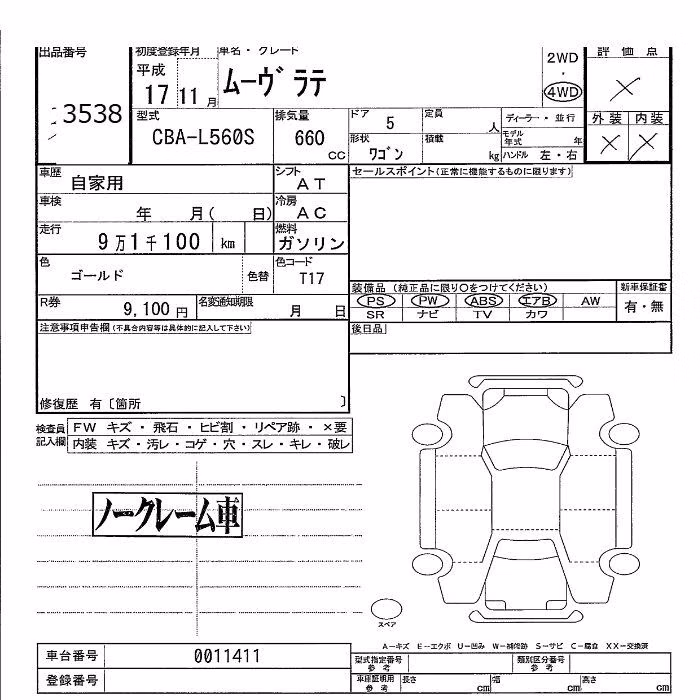 出品番号 3538
初度登録年月 平成 17 11 月
車名・グレード ムーヴ ラテ
2WD ・ 4WD
評価点 ×
型式 CBA-L560S
排気量 660 cc
ドア 5
定員 人
ディーラー・並行
形状 ワゴン
積載 kg
モデル年式 年
ハンドル 左・右
外装 内装
× ×
車歴 自家用
シフト AT
セールスポイント(正常に機能するものに限ります)
車検 年 月( 日)
冷房 AC
走行 9万1千100 km
燃料 ガソリン
色 ゴールド 色替
色コード T17
装備品 (純正品に限り○をつけてください)
新車保証書
PS PW ABS エアB AW
有・無
SR ナビ TV カワ
R券 9,100 円
名変通知期限 月 日
注意事項申告欄(不具合内容等は具体的に記入して下さい)
後日品
修復歴 有〔箇所 〕
検査員記入欄
FW キズ・飛石・ヒビ割・リペア跡・×要
内装 キズ・汚レ・コゲ・穴・スレ・キレ・破レ
ノークレーム車
スペア
A-キズ E-エクボ U-凹み W-補修跡 S-サビ C-腐食 XX-交換済
車台番号 0011411
型式指定番号 参考
類別区分番号 参考
登録番号
車庫証明用 参考
長さ cm 幅 cm 高さ cm